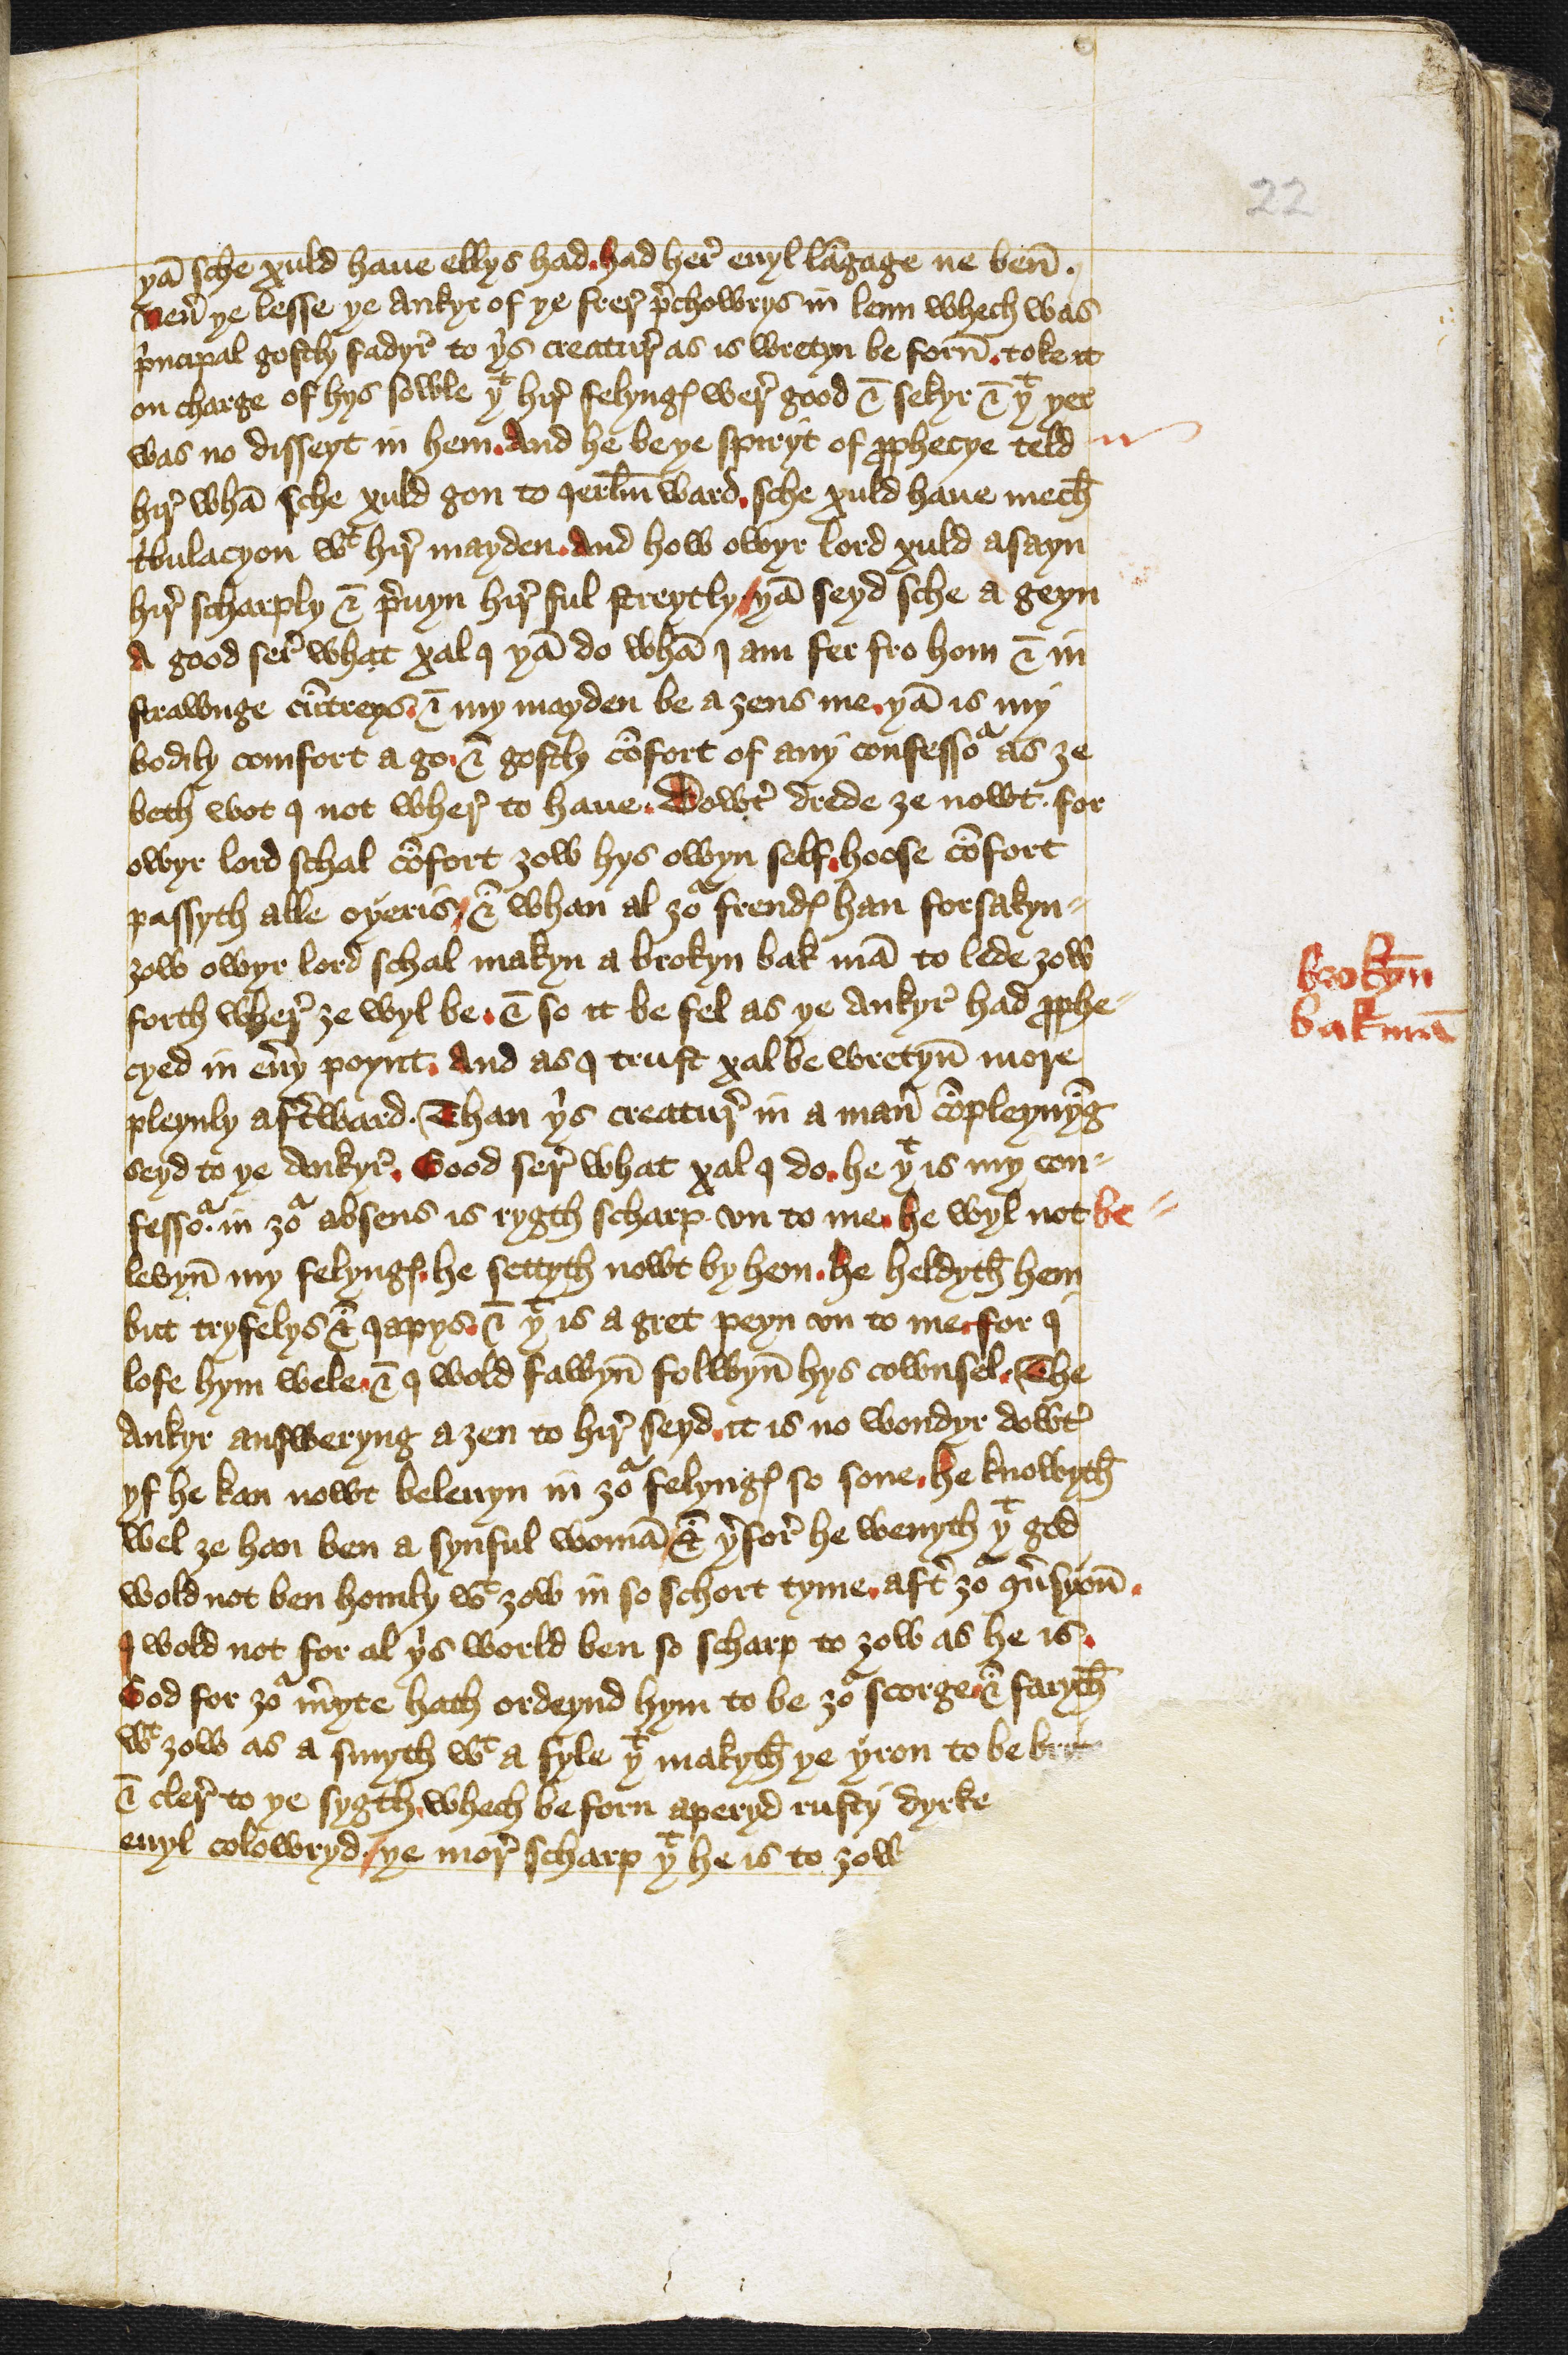 22
yā sche xuld haue ellys had. had her̉ euyl lāgage ne ben̄.
Neủ ye lesse ye Ankyr of ye frer̉ p̉chowrys in lenn whech was
p̉ncipal gostly fadyr̉ to yͥs creatur̉ as is wretyn be forn̄. toke it
on charge of hys sowle yͭ hir̉ felyngꝭ wer̉ good & sekyr & yͭ yer
was no disseyt in hem. And he be ye spiryt of ꝓphecye teld
hir̉ whā sche xuld gon to Ierlm̄ ward. sche xuld haue mech̄
tͥbulacyon wͭ hir̉ mayden. And how owyr lord xuld asayn
hir̉ scharply & p̉uyn hir̉ ful streytly / yā seyd sche a geyn
A good ser̉ what xal I yā do whā I am fer fro hom & in
strawnge cūtreys. & my mayden be a ȝens me. yā is my
bodily comfort a go. & gostly cōfort of any confessoᷓ as ȝe
beth wot I not wher̉ to haue. Dowt̉ drede ȝe nowt. for
owyr lord schal cōfort ȝow hys owyn self. hoose cōfort
passyth alle oyeris / & whan al ȝoᷓ frendꝭ han forsakyn =
ȝow owyr lord schal makyn a brokyn bak mā to lede ȝow
forth wher̉ ȝe wyl be. & so it be fel as ye Ankyr̉ had ꝓphe =
cyed in eủy poynt. And as I trust xal be wretyn̄ more
pleynly aft̉ward. Than yͥs creatur̉ in a man̉ cōpleynyḡ
seyd to ye Ankyr̉. Good ser̉ what xal I do. he yͭ is my con =
fessoᷓ. in ȝoᷓ absens is rygth scharp vn to me. he wyl not be =
levyn̄ my felyngꝭ. he settyth nowt by hem. he heldyth̄ hem
but tryfelys & Iapys. & yͭ is a gret peyn vn to me. for I
lofe hym wele. & I wold fawyn̄ folwyn̄ hys cownsel. The
Ankyr answeryng a ȝen to hir̉ seyd. it is no wondyr dowt̉
yf he kan nowt beleuyn in ȝoᷓ felyngꝭ so sone. he knowyth̄
wel ȝe han ben a synful womā / & ỷfor̉ he wenyth yͭ god
wold not ben homly wͭ ȝow in so schort tyme. aft̉ ȝoᷓ ꝯủsyon̄.
I wold not for al yͥs world ben so scharp to ȝow as he is.
God for ȝoᷓ m̉yte hath ordeynd hym to be ȝoᷓ scorge. & faryth̄
wͭ ȝow as a smyth wͭ a fyle yͭ makyth̄ ye yron to be
& cler̉ to ye sygth. whech be forn aperyd rusty dyrke
euyl colowryd. / ye mor̉ scharp yͭ he is to ȝow
brokȳn
bak mā